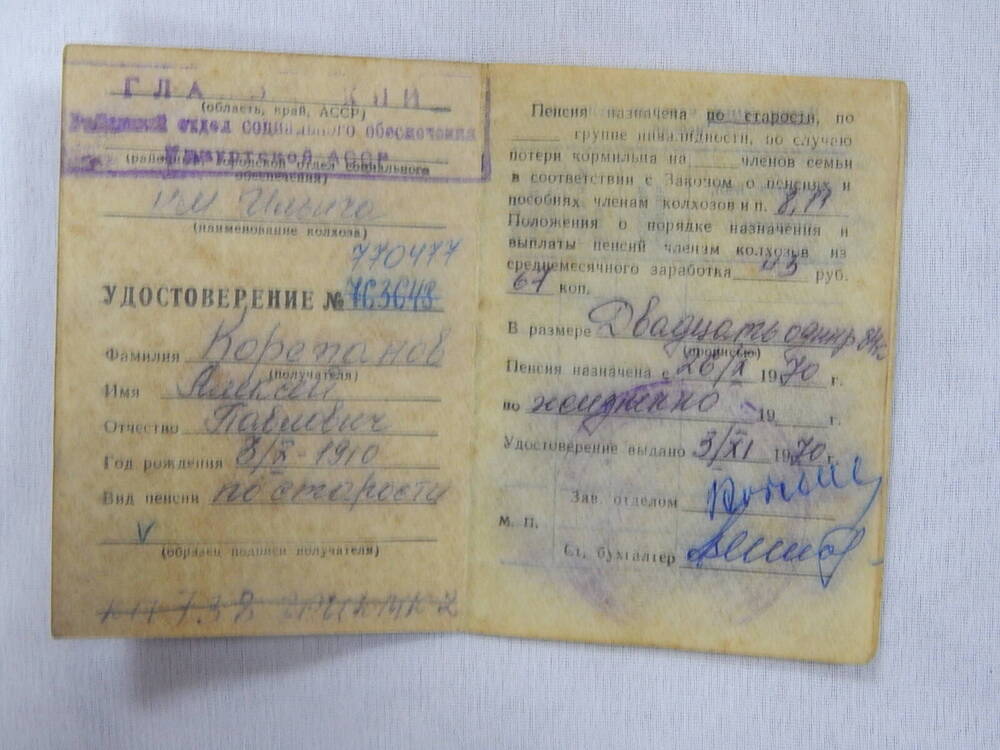 ГЛАЗ КИЙ
(область, край, АССР)
Районный отдел социального обеспечения
Удмуртской АССР
(районный, городской отдел социального
обеспечения)
им Ильича
(наименование колхоза)
770477
УДОСТОВЕРЕНИЕ № 763648
Фамилия Корепанов
(получателя)
Имя Алексей
Отчество Павлович
Год рождения 3/X-1910
Вид пенсии по старости
V
(образец подписи получателя)
Пенсия назначена по старости, по
____ группе инвалидности, по случаю
потери кормильца на ____ членов семьи
в соответствии с Законом о пенсиях и
пособиях членам колхозов и п. 8,19
Положения о порядке назначения и
выплаты пенсий членам колхозов из
среднемесячного заработка 43 руб.
67 коп.
В размере Двадцать один р 84к
(прописью)
Пенсия назначена с 26/X 1970 г.
по жизненно 19 г.
Удостоверение выдано 3/XI 1970 г.
Зав. отделом
М. П.
Ст. бухгалтер